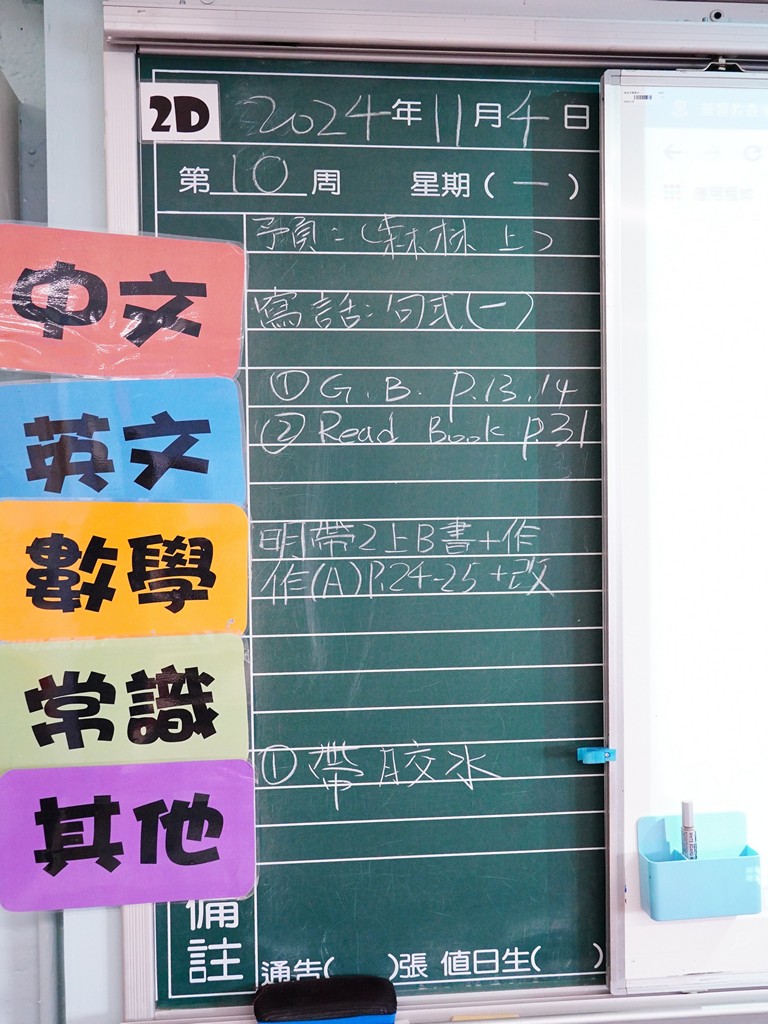 2D 2024年11月4日
第10周 星期(一)
中文
預:(森林上)
寫話:句式(一)
英文
① G.B. P.13,14
② Read Book P.31
數學
明帶2上B書+作
作(A)P.24-25+改
常識
① 帶胶水
其他
備註
通告( )張 值日生( )